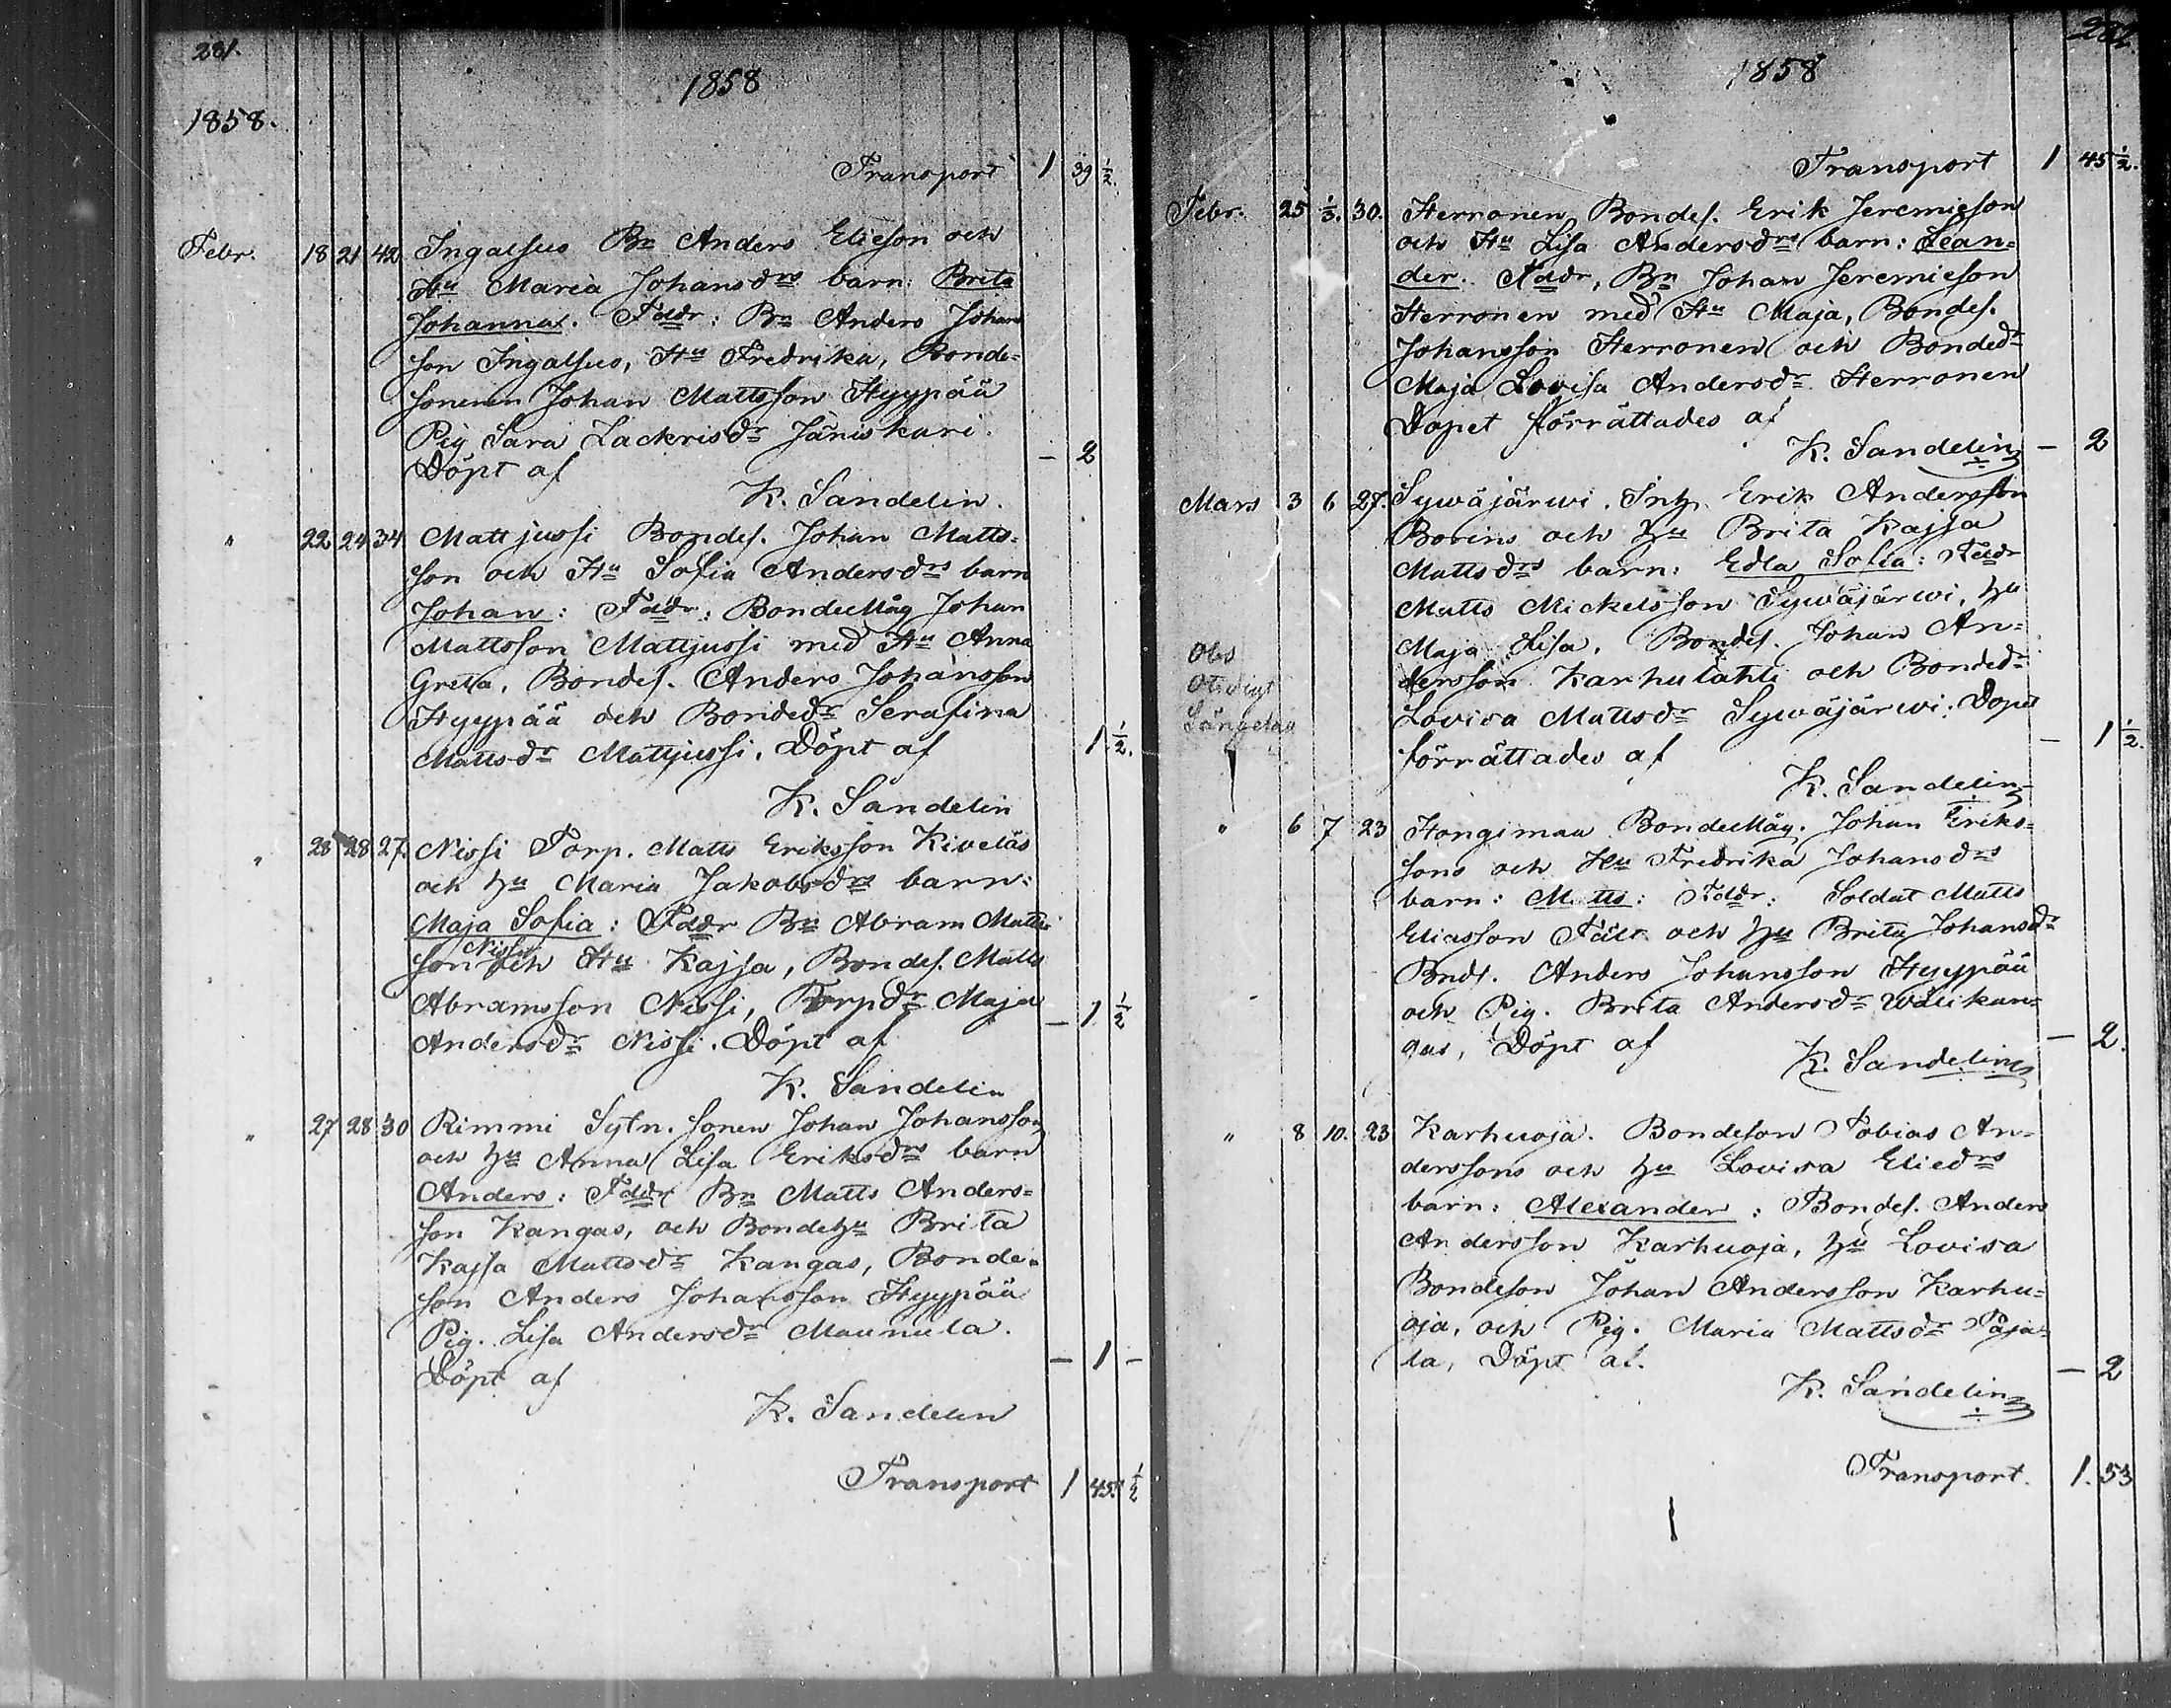 281.
1858
1858.
Transport 1 39 1/2.
Febr. 18 21 42 Ingalsuo Bn Anders Elieson och
Hu Maria Johansdrs barn: Brita
Johanna. Faddr: Bn Anders Johans
son Ingalsuo, Hu Fredrika, Bonde-
sonen Johan Mattsson Hyypää
Pig Sara Zackrisdr Jäniskari.
Döpt af — 2
K. Sandelin.
" 22 24 34 Mattjussi Bondes. Johan Matts-
son och Hu Sofia Andersdrs barn
Johan: Faddr: BondeMåg Johan
Mattsson Mattjussi med Hu Anna
Greta, Bondes. Anders Johansson
Hyypää och Bondedr Serafina
Mattsdr Mattjussi. Döpt af 1 1/2.
K. Sandelin
" 23 28 27. Nissi Torp. Matts Eriksson Kiveläs
och hu Maria Jakobsdrs barn:
Maja Sofia: Faddr Bn Abram Matts
son Nissi och Hu Kajsa, Bondes. Matts
Abramsson Nissi, Torpdr Maja
Andersdr Nissi. Döpt af — 1 1/2
K. Sandelin
" 27 28 30 Rimmi Sytn. sonen Johan Johansson
och hu Anna Lisa Eriksdrs barn
Anders: Faddr Bn Matts Anders-
son Kangas, och Bondehu Brita
Kajsa Mattsdr Kangas, Bonde-
son Anders Johansson Hyypää
Pig. Lisa Andersdr Maunula.
Döpt af — 1 —
K. Sandelin
Transport 1 45 1/2
282.
1858
Transport 1 45 1/2.
Febr. 25 1/3. 30. Herronen Bondes. Erik Jeremieson
och Hu Lisa Andersdrs barn: Lean-
der. Faddr, Bn Johan Jeremieson
Herronen med Hu Maja, Bondes.
Johansson Herronen och Bondedr
Maja Lovisa Andersdr Herronen
Dopet förrättades af
K. Sandelin — 2
Mars 3 6 27. Sywäjärwi. Inh. Erik Andersson
Borins och hu Brita Kajsa
Mattsdrs barn: Edla Sofia: Faddr
Matts Mickelsson Sywäjärwi, hu
Obs Maja Lisa, Bondes. Johan An-
dersson Karhulahti och Bondedr
Lovisa Mattsdr Sywäjärwi: Dopet
förrättades af — 1 1/2.
K. Sandelin
" 6 7 23 Hongimaa BondeMåg. Johan Eriks-
sons och Hu Fredrika Johansdrs
barn: Matts: Faddr: Soldat Matts
Eliasson Fält och hu Brita Johansdr
Bnds. Anders Johansson Hyypää
och Pig. Brita Andersdr Wälikan-
gas, Döpt af — 2.
K. Sandelin
" 8 10. 23 Karhuoja. Bondeson Tobias An-
derssons och hu Lovisa Eliedrs
barn: Alexander: Bondes. Anders
Andersson Karhuoja, hu Lovisa
Bondeson Johan Andersson Karhu-
oja, och Pig. Maria Mattsdr Paja-
la, Döpt af. — 2
K. Sandelin
Transport. 1. 53